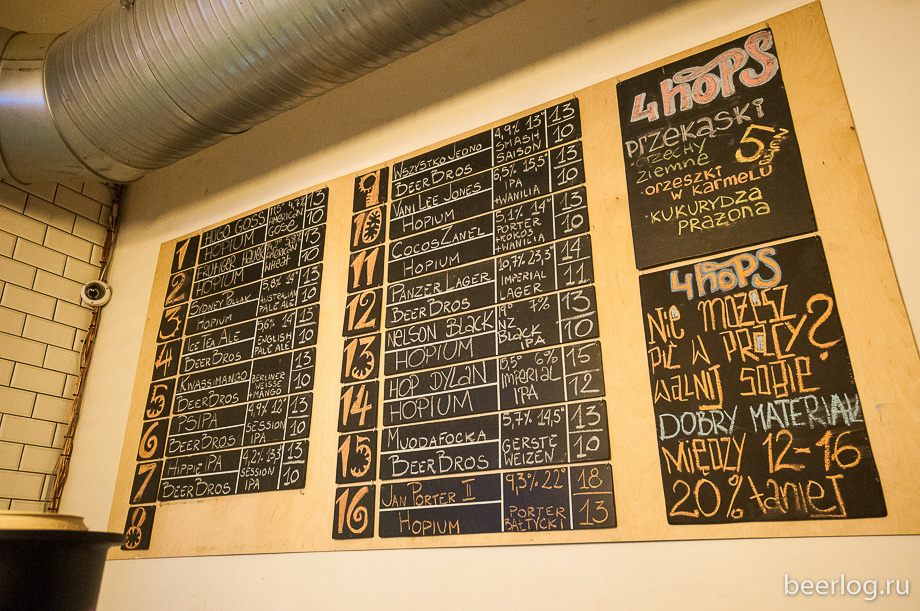 1
HUGO GOSS
HOPIUM
4,7%
AMERICAN
GOSE
13
10
2
HOPIUM
AMERICAN
WHEAT
13
10
3
SYDNEY POLLAK
HOPIUM
5,8% 14°
AUSTRALIAN
PALE ALE
13
10
4
ICE TEA ALE
BEERBROS
5,6% 14°
ENGLISH
PALE ALE
13
10
5
KWASSIMANGO
BEERBROS
BERLINER
WEISSE
+MANGO
13
10
6
PSIPA
BEERBROS
4,9% 12°
SESSION
IPA
13
10
7
HIPPIE IPA
BEERBROS
4,2% 13,3°
SESSION
IPA
13
10
8
9
WSZYSTKO JEDNO
BEERBROS
4,9% 13°
SMASH
SAISON
13
10
10
VANI LEE JONES
HOPIUM
6,5% 15,5°
IPA
+WANILIA
13
10
11
COCOSZANEL
HOPIUM
5,1% 14°
PORTER
+KOKOS
+WANILIA
13
10
12
PANZER LAGER
BEERBROS
10,7% 23,3°
IMPERIAL
LAGER
14
11
13
NELSON BLACK
HOPIUM
NZ
BLACK
IPA
13
10
14
HOP DYLAN
HOPIUM
IMPERIAL
IPA
15
12
15
MUODAFOCKA
BEERBROS
5,7% 14,5°
GERSTE
WEIZEN
13
10
16
JAN PORTER II
HOPIUM
9,3% 22°
PORTER
BAŁTYCKI
18
13
4HOPS
PRZEKĄSKI
ORZECHY
ZIEMNE
5
ORZESZKI
W KARMELU
KUKURYDZA
PRAŻONA
4HOPS
NIE MOŻESZ
PIĆ W PRACY?
WALNIJ SOBIE
DOBRY MATERIAŁ
MIĘDZY 12-16
20% taniej
beerlog.ru